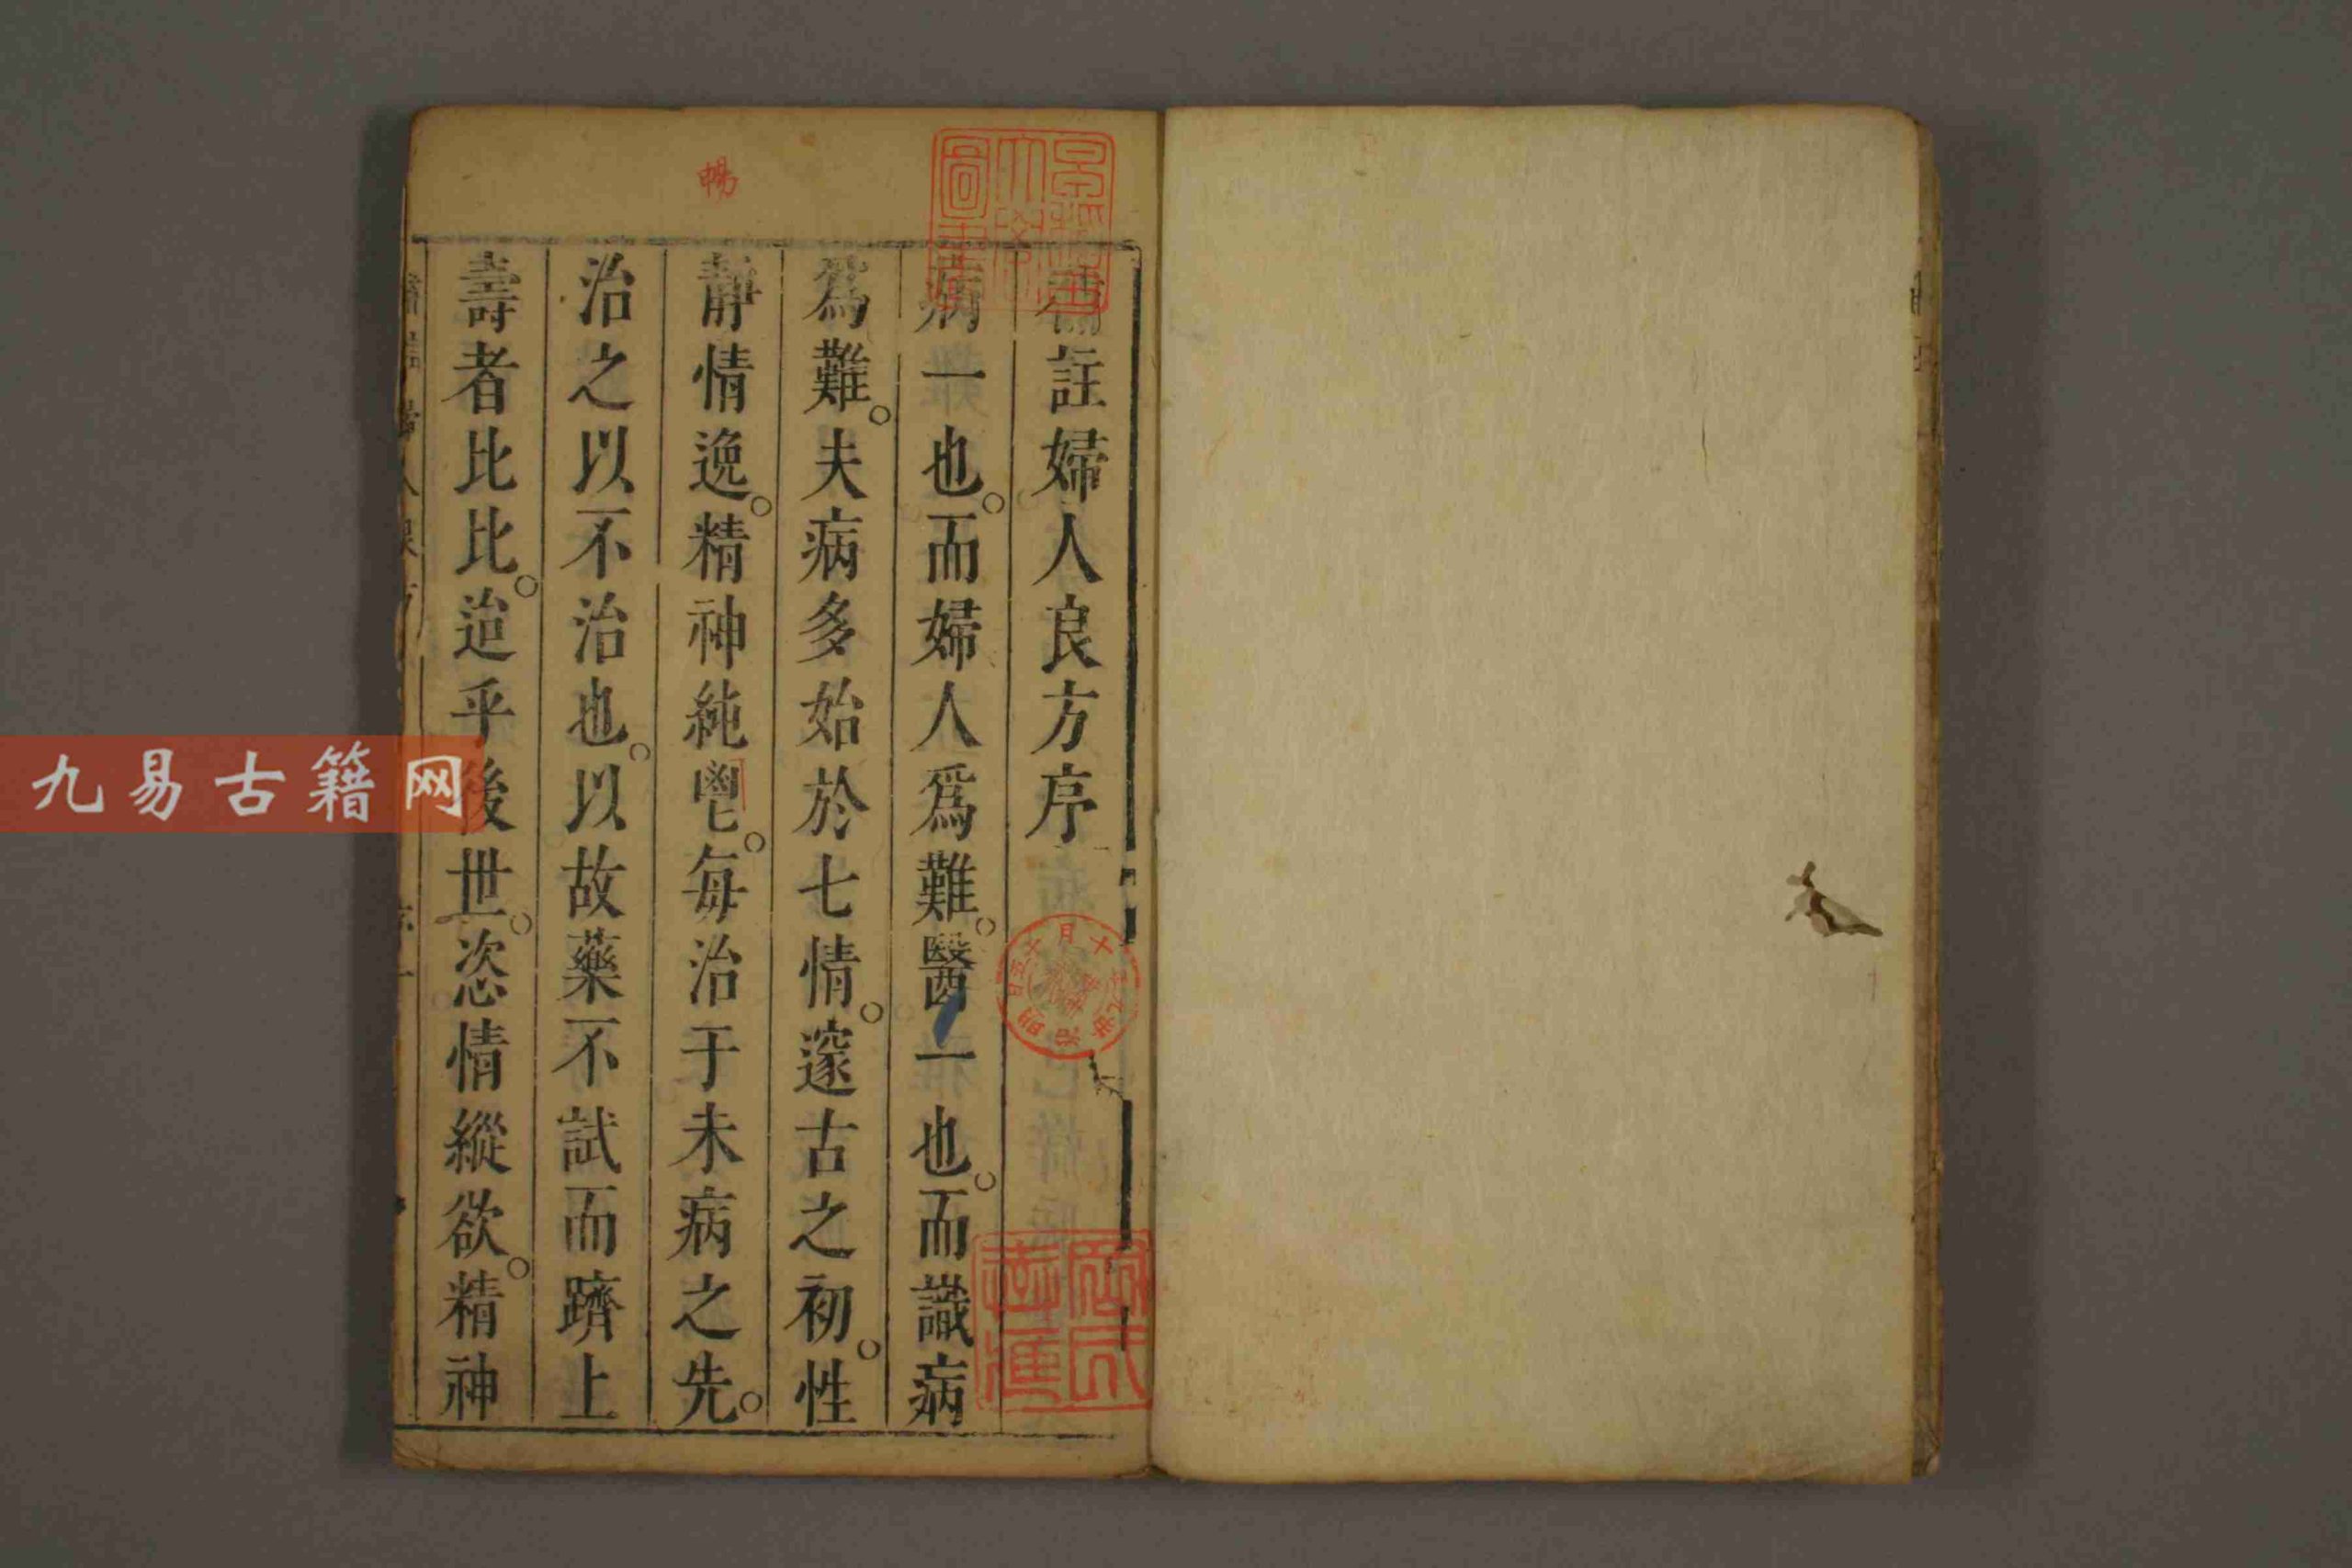 暢
補註婦人良方序
病一也。而婦人爲難。醫一也。而識病
爲難。夫病多始於七情。邃古之初。性
靜情逸。精神純鬯。每治于未病之先。
治之以不治也。以故藥不試而躋上
壽者比比。迨乎後世。恣情縱欲。精神
九易古籍网